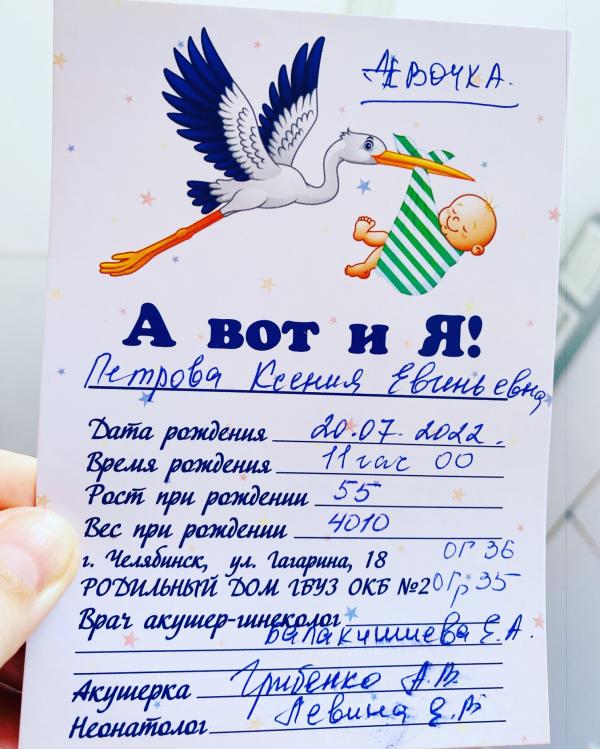 Девочка.
А вот и Я!
Петрова Ксения Евгеньевна
Дата рождения 20.07.2022.
Время рождения 11 час 00
Рост при рождении 55
Вес при рождении 4010
г. Челябинск, ул. Гагарина, 18 ОГ 36
РОДИЛЬНЫЙ ДОМ ГБУЗ ОКБ №2 ОГр 35
Врач акушер-гинеколог
Е.А.
Акушерка Грибенко А.В.
Неонатолог Левина Е.В